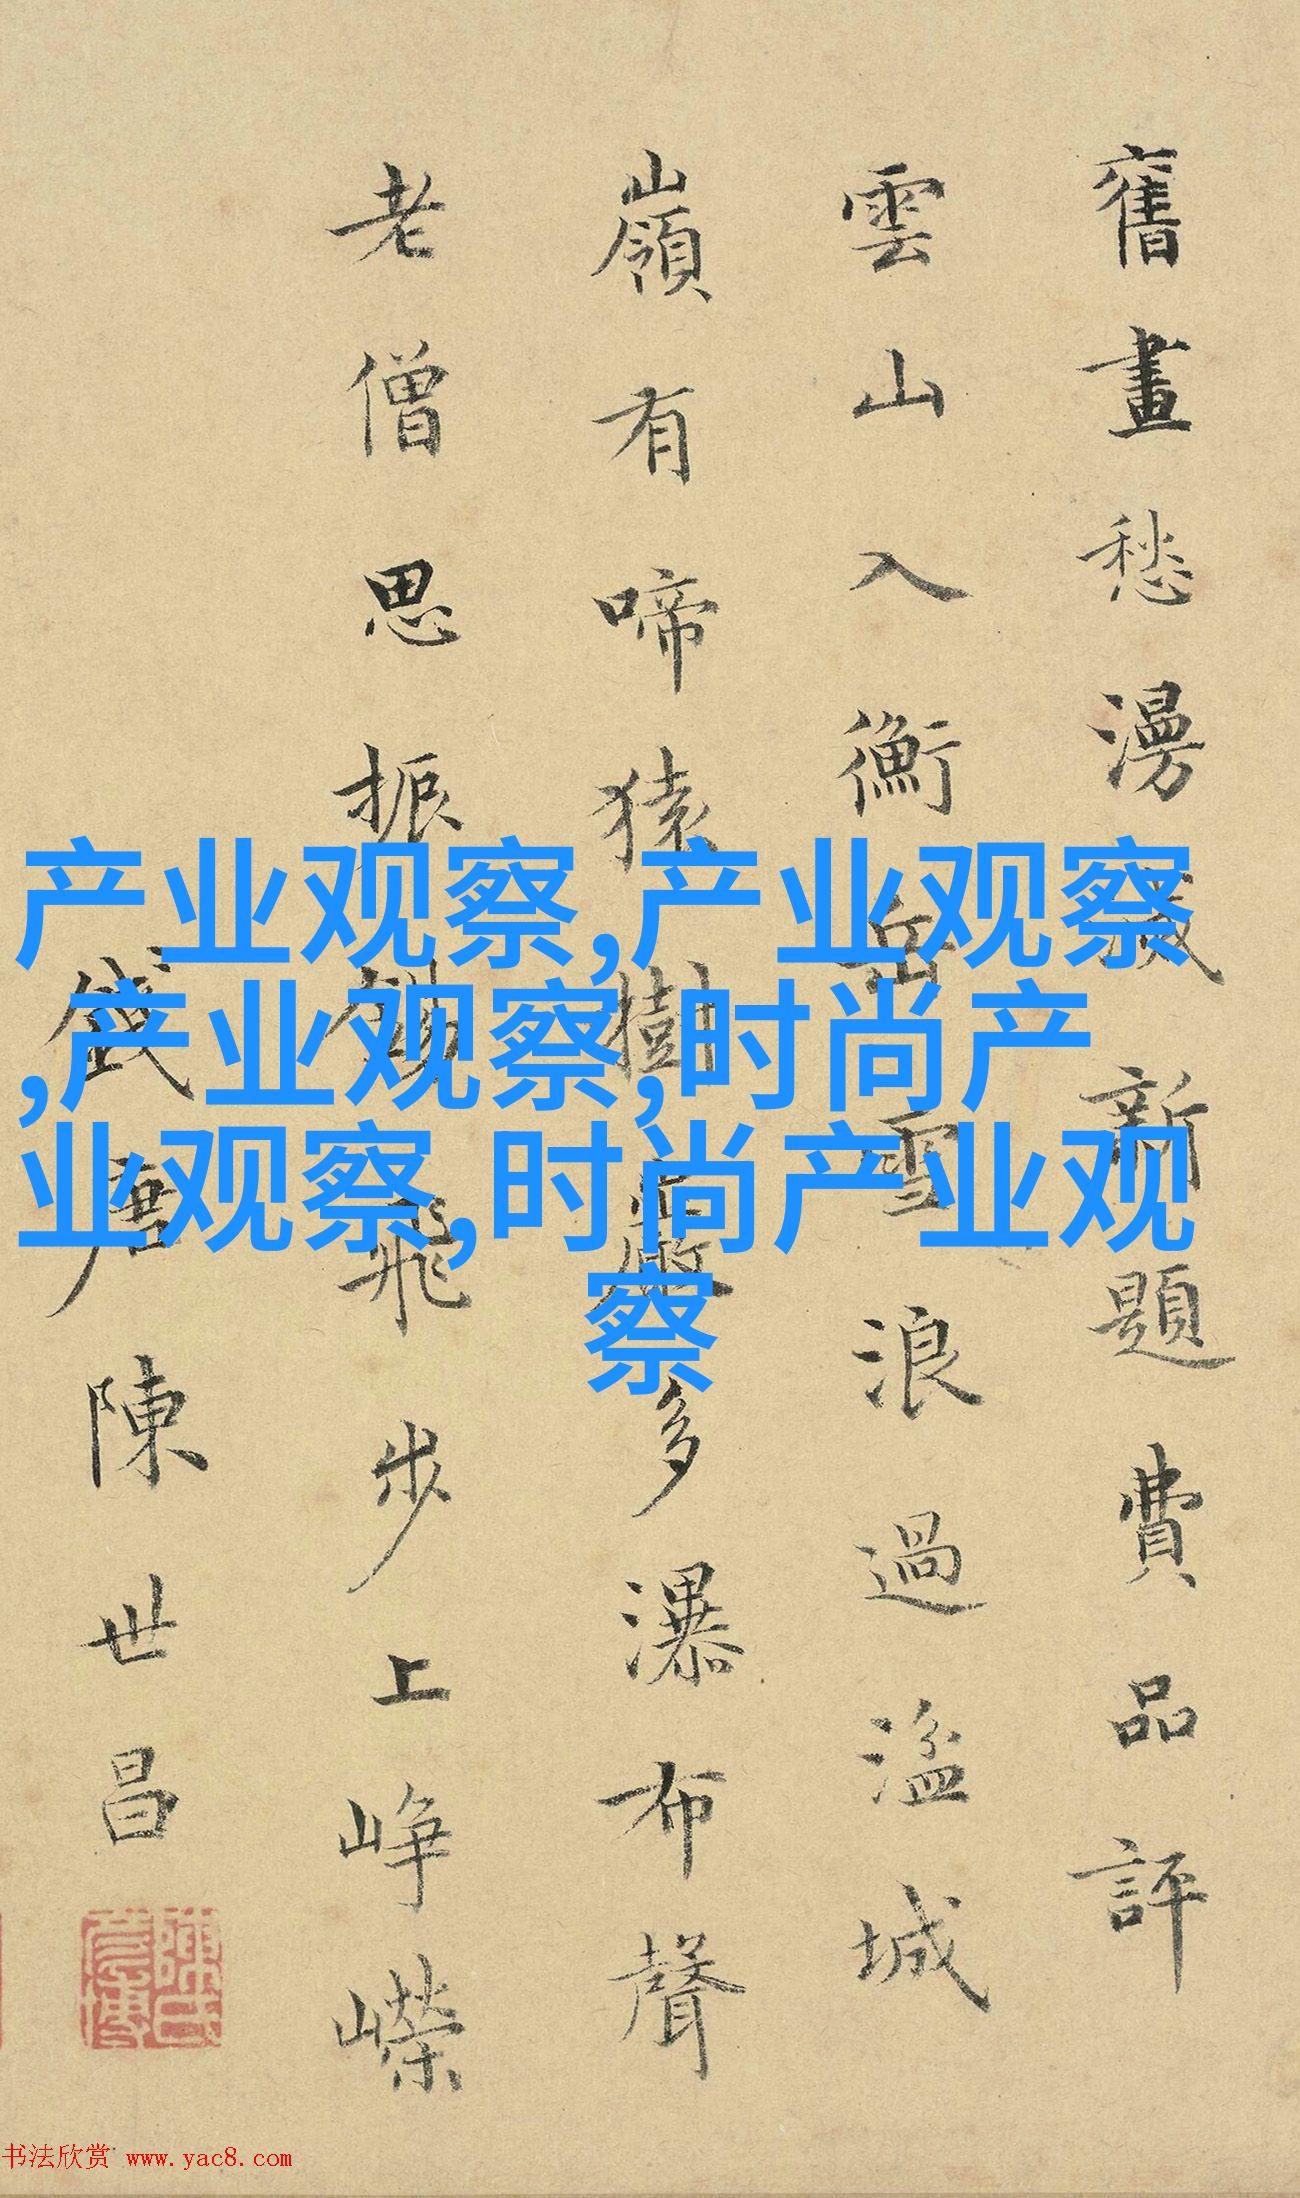 舊畫愁漫滅新題費品評
雲山入衡岳雪浪過溢城
嶺有啼猿樹巖多瀑布聲
老僧思振錫飛步上峥嶸
錢唐陳世昌
产业观察,产业观察
,产业观察,时尚产
业观察,时尚产业观
察
书法欣赏 www.yac8.com